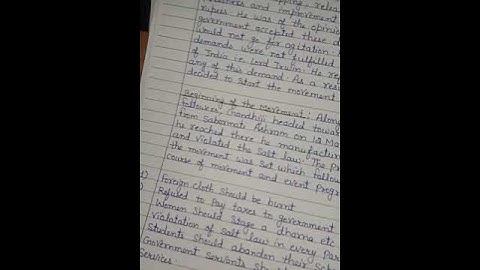 relea
and improvement
rupees. He was of the opinio
government accepted these d
would not go for agitation.
demands were not fulfilled
of India i.e Lord Irwin. He re
any of this demand. As a res
decided to start the movement
Beginning of the Movement: Along
followers Gandhiji headed towar
from Sabarmati Ashram on 12 Ma
he reached there he manufactur
and violated the Salt law. The p
the movement was set which follow
course of movement and event progr
1) Foreign cloth should be burnt
Refused to pay taxes to government
Women should stage a dharna etc
Violatation of Salt law in every par
Students should abandon their sch
Government Servants sh
Services.